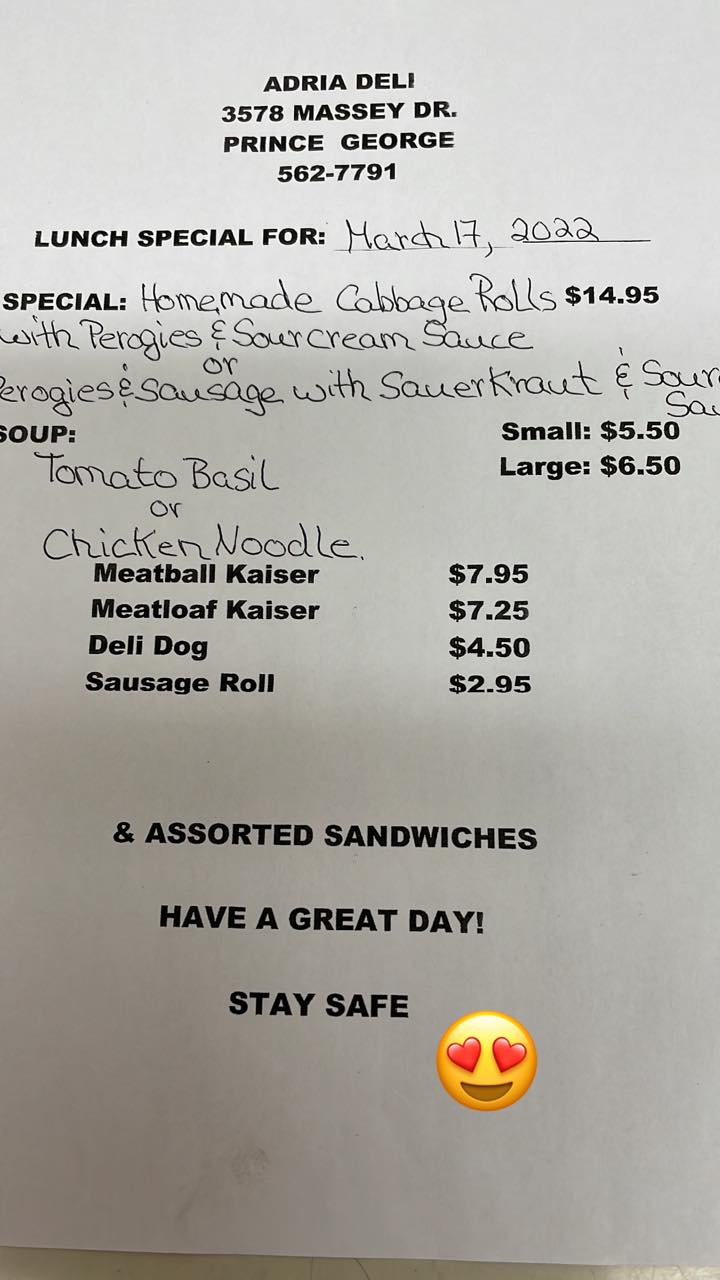 ADRIA DELI
3578 MASSEY DR.
PRINCE GEORGE
562-7791
LUNCH SPECIAL FOR: March 17, 2022
SPECIAL: Homemade Cabbage Rolls $14.95
with Perogies & Sourcream Sauce
or
Perogies & Sausage with Sauerkraut & Sour
Sau
SOUP: Small: $5.50
Large: $6.50
Tomato Basil
or
Chicken Noodle.
Meatball Kaiser $7.95
Meatloaf Kaiser $7.25
Deli Dog $4.50
Sausage Roll $2.95
& ASSORTED SANDWICHES
HAVE A GREAT DAY!
STAY SAFE